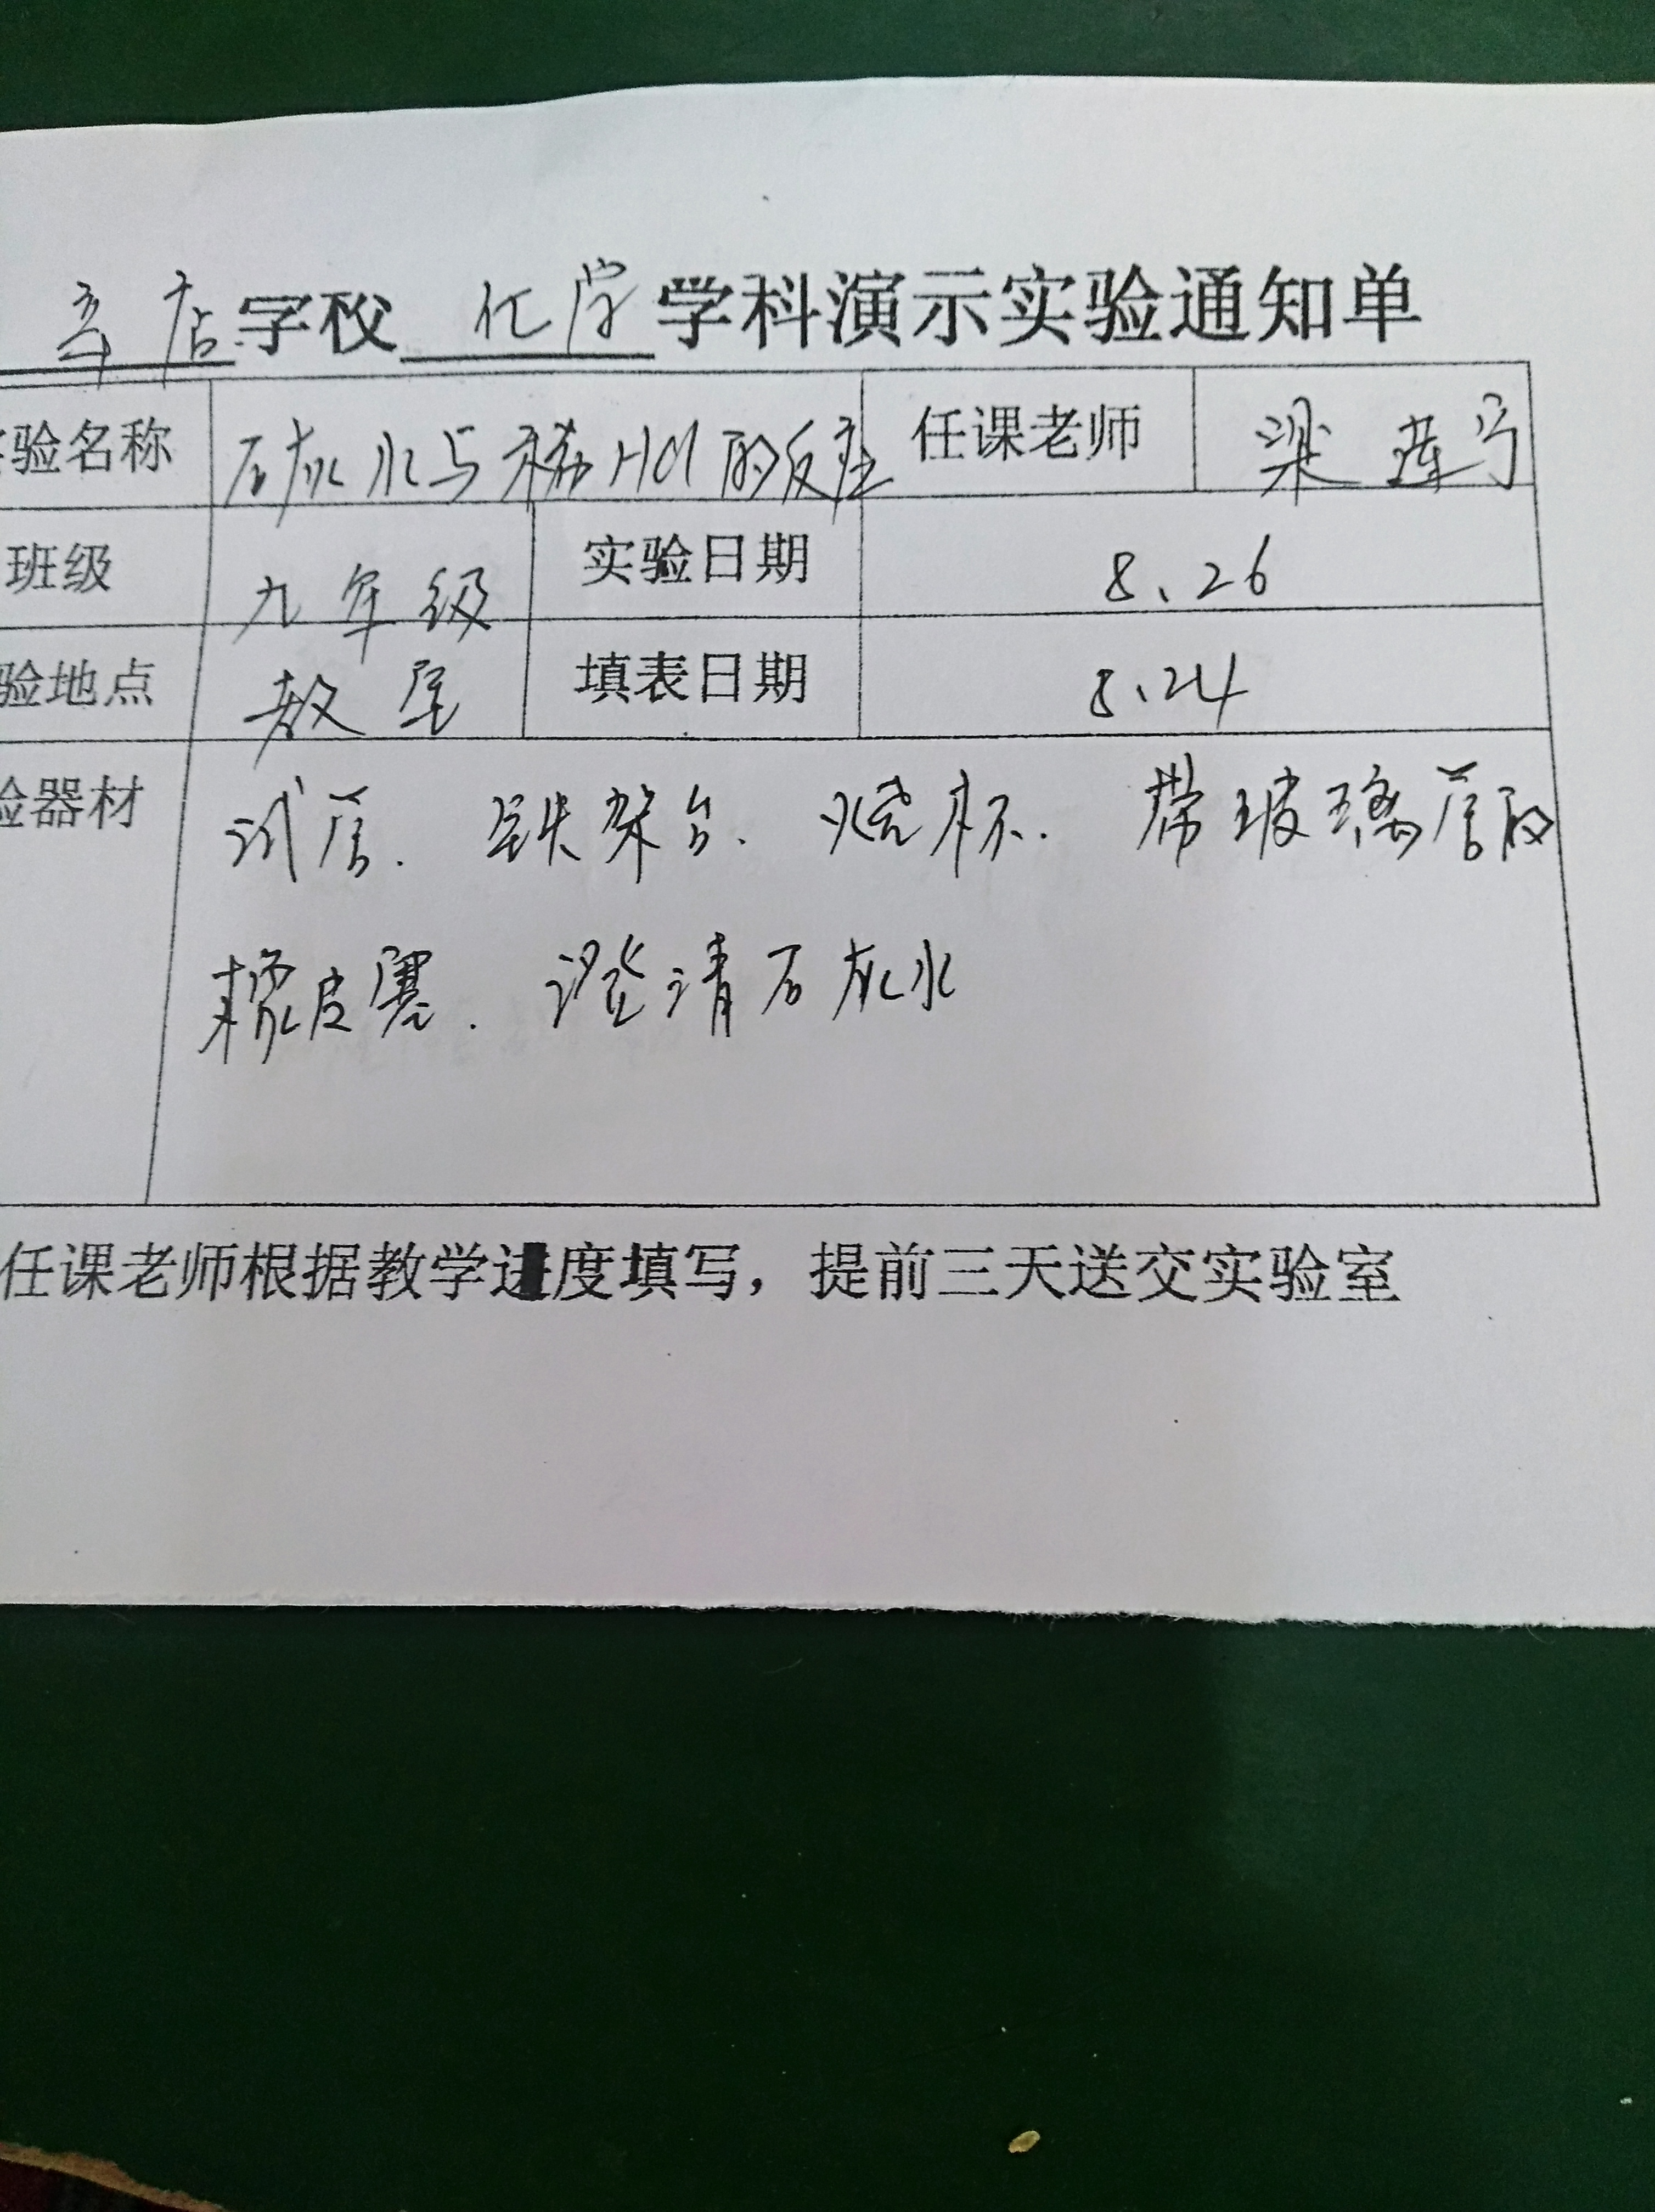 店学校 化学 学科演示实验通知单
验名称 石灰水与稀HCl的反应 任课老师 梁莲宁
班级 九年级 实验日期 8、26
验地点 教室 填表日期 8、24
验器材 试管. 铁架台. 烧杯. 带玻璃管的
橡皮塞. 澄清石灰水
任课老师根据教学进度填写，提前三天送交实验室